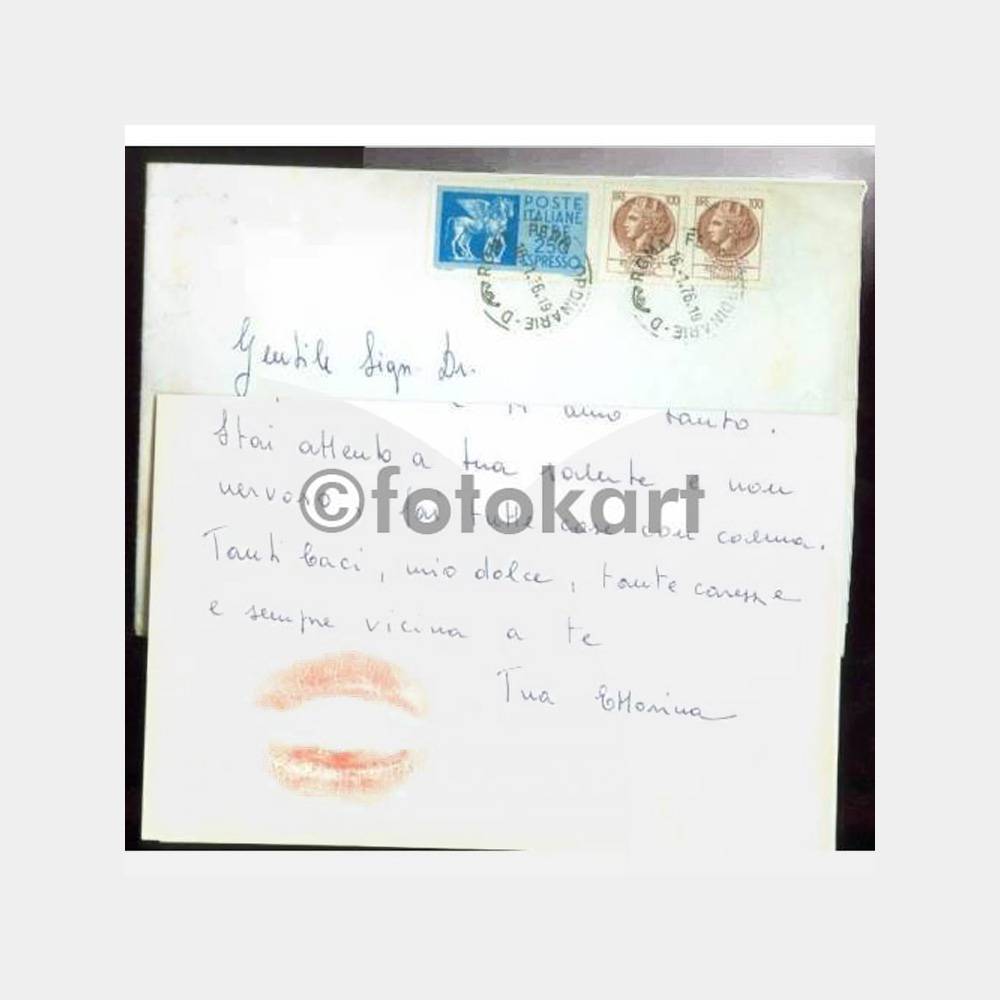 POSTE
ITALIANE
LIRE
250
ESPRESSO
LIRE 100
LIRE 100
ROMA
16.-1.76.19
ORDINARIE-D
ROMA
16.-1.76.19
ORDINARIE-D
Gentile Sign. Dr.
Ti amo tanto.
Stai attento a tua salute e non
nervoso, fai tutte cose con calma.
Tanti baci, mio dolce, tante carezze
e sempre vicina a te
Tua Ettorina
©fotokart